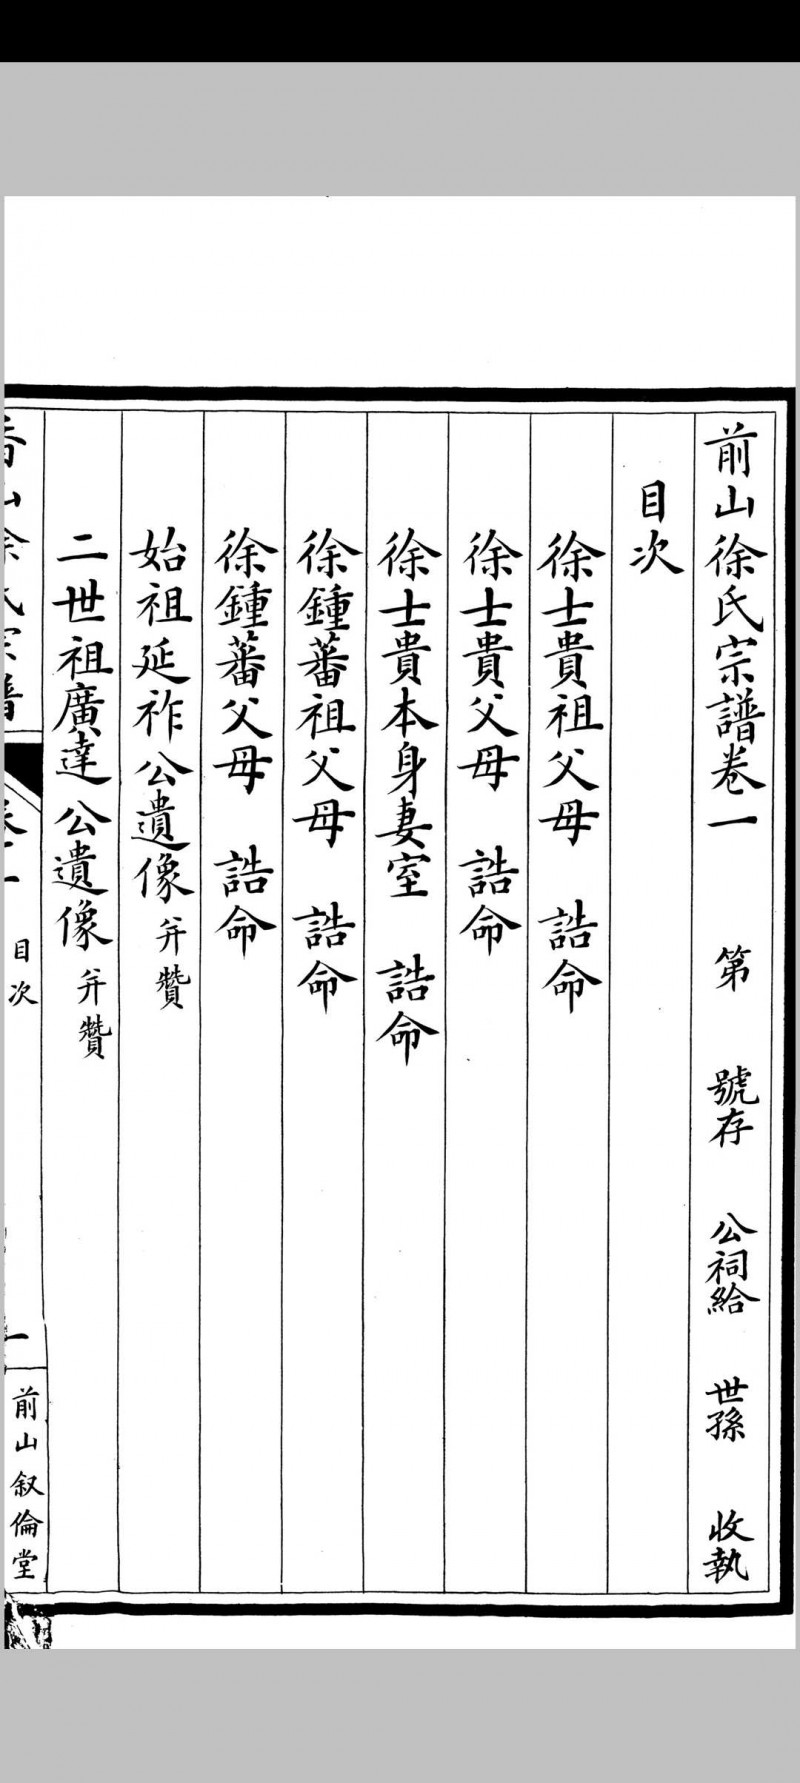 前山徐氏宗譜卷一 第 號存 公祠給 世孫 收執
目次
徐士貴祖父母 誥命
徐士貴父母 誥命
徐士貴本身妻室 誥命
徐鍾蕃祖父母 誥命
徐鍾蕃父母 誥命
始祖延祚公遺像 并贊
二世祖廣達公遺像 并贊
山徐氏宗譜 卷一 目次 一 前山叙倫堂